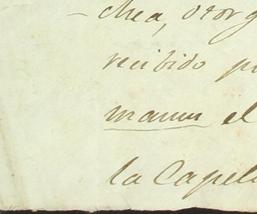 – chea, otorg
recibido p
manun el
la Capell